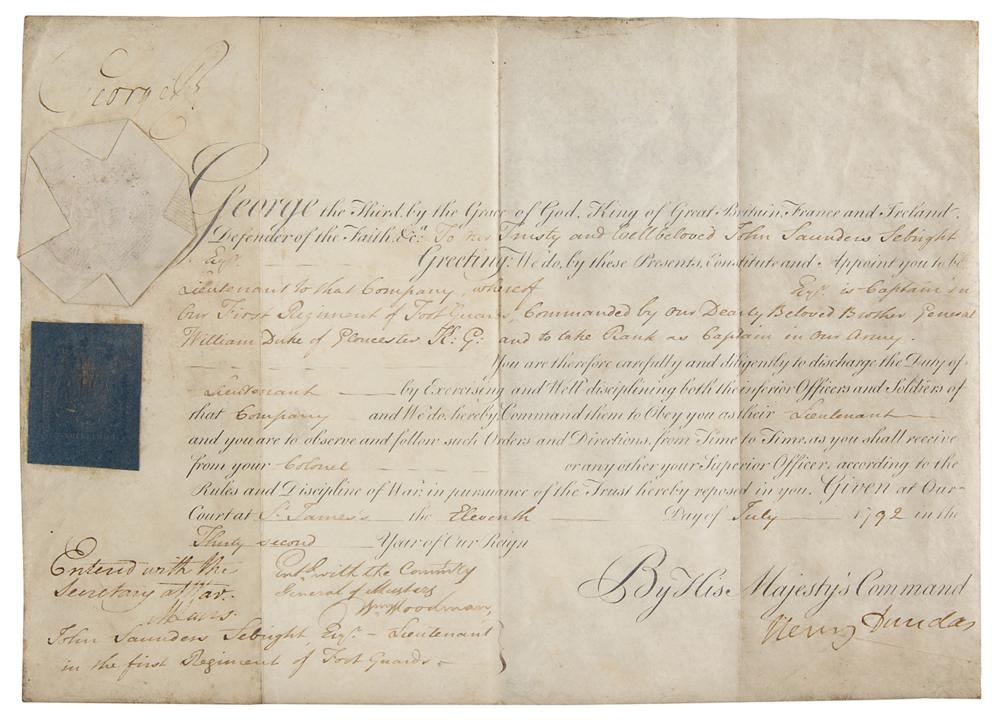 George R
George the Third, by the Grace of God, King of Great Britain, France and Ireland,
Defender of the Faith, &c.a To our Trusty and Wellbeloved John Saunders Sebright
Esqr. Greeting: We do, by these Presents, Constitute and Appoint you to be
Lieutenant to that Company whereof Esqr. is Captain in
Our First Regiment of Foot Guards, Commanded by our Dearly Beloved Brother General
William Duke of Gloucester K: G: and to take Rank as Captain in our Army.
You are therefore carefully and diligently to discharge the Duty of
Lieutenant by Exercising and Well disciplining both the inferior Officers and Soldiers of
that Company and We do, hereby Command them to Obey you as their Lieutenant
and you are to observe and follow such Orders and Directions, from Time to Time, as you shall receive
from your Colonel or any other your Superior Officer, according to the
Rules and Discipline of War, in pursuance of the Trust hereby reposed in you. Given at Our
Court at St. James's the Eleventh Day of July 1792 in the
Thirty second Year of Our Reign
By His Majesty's Command
Henry Dundas
Enterd with the
Secretary at War.
Entd. with the Commry
General of Musters
Wm Woodman,
John Saunders Sebright Esqr. - Lieutenant
in the first Regiment of Foot Guards. -